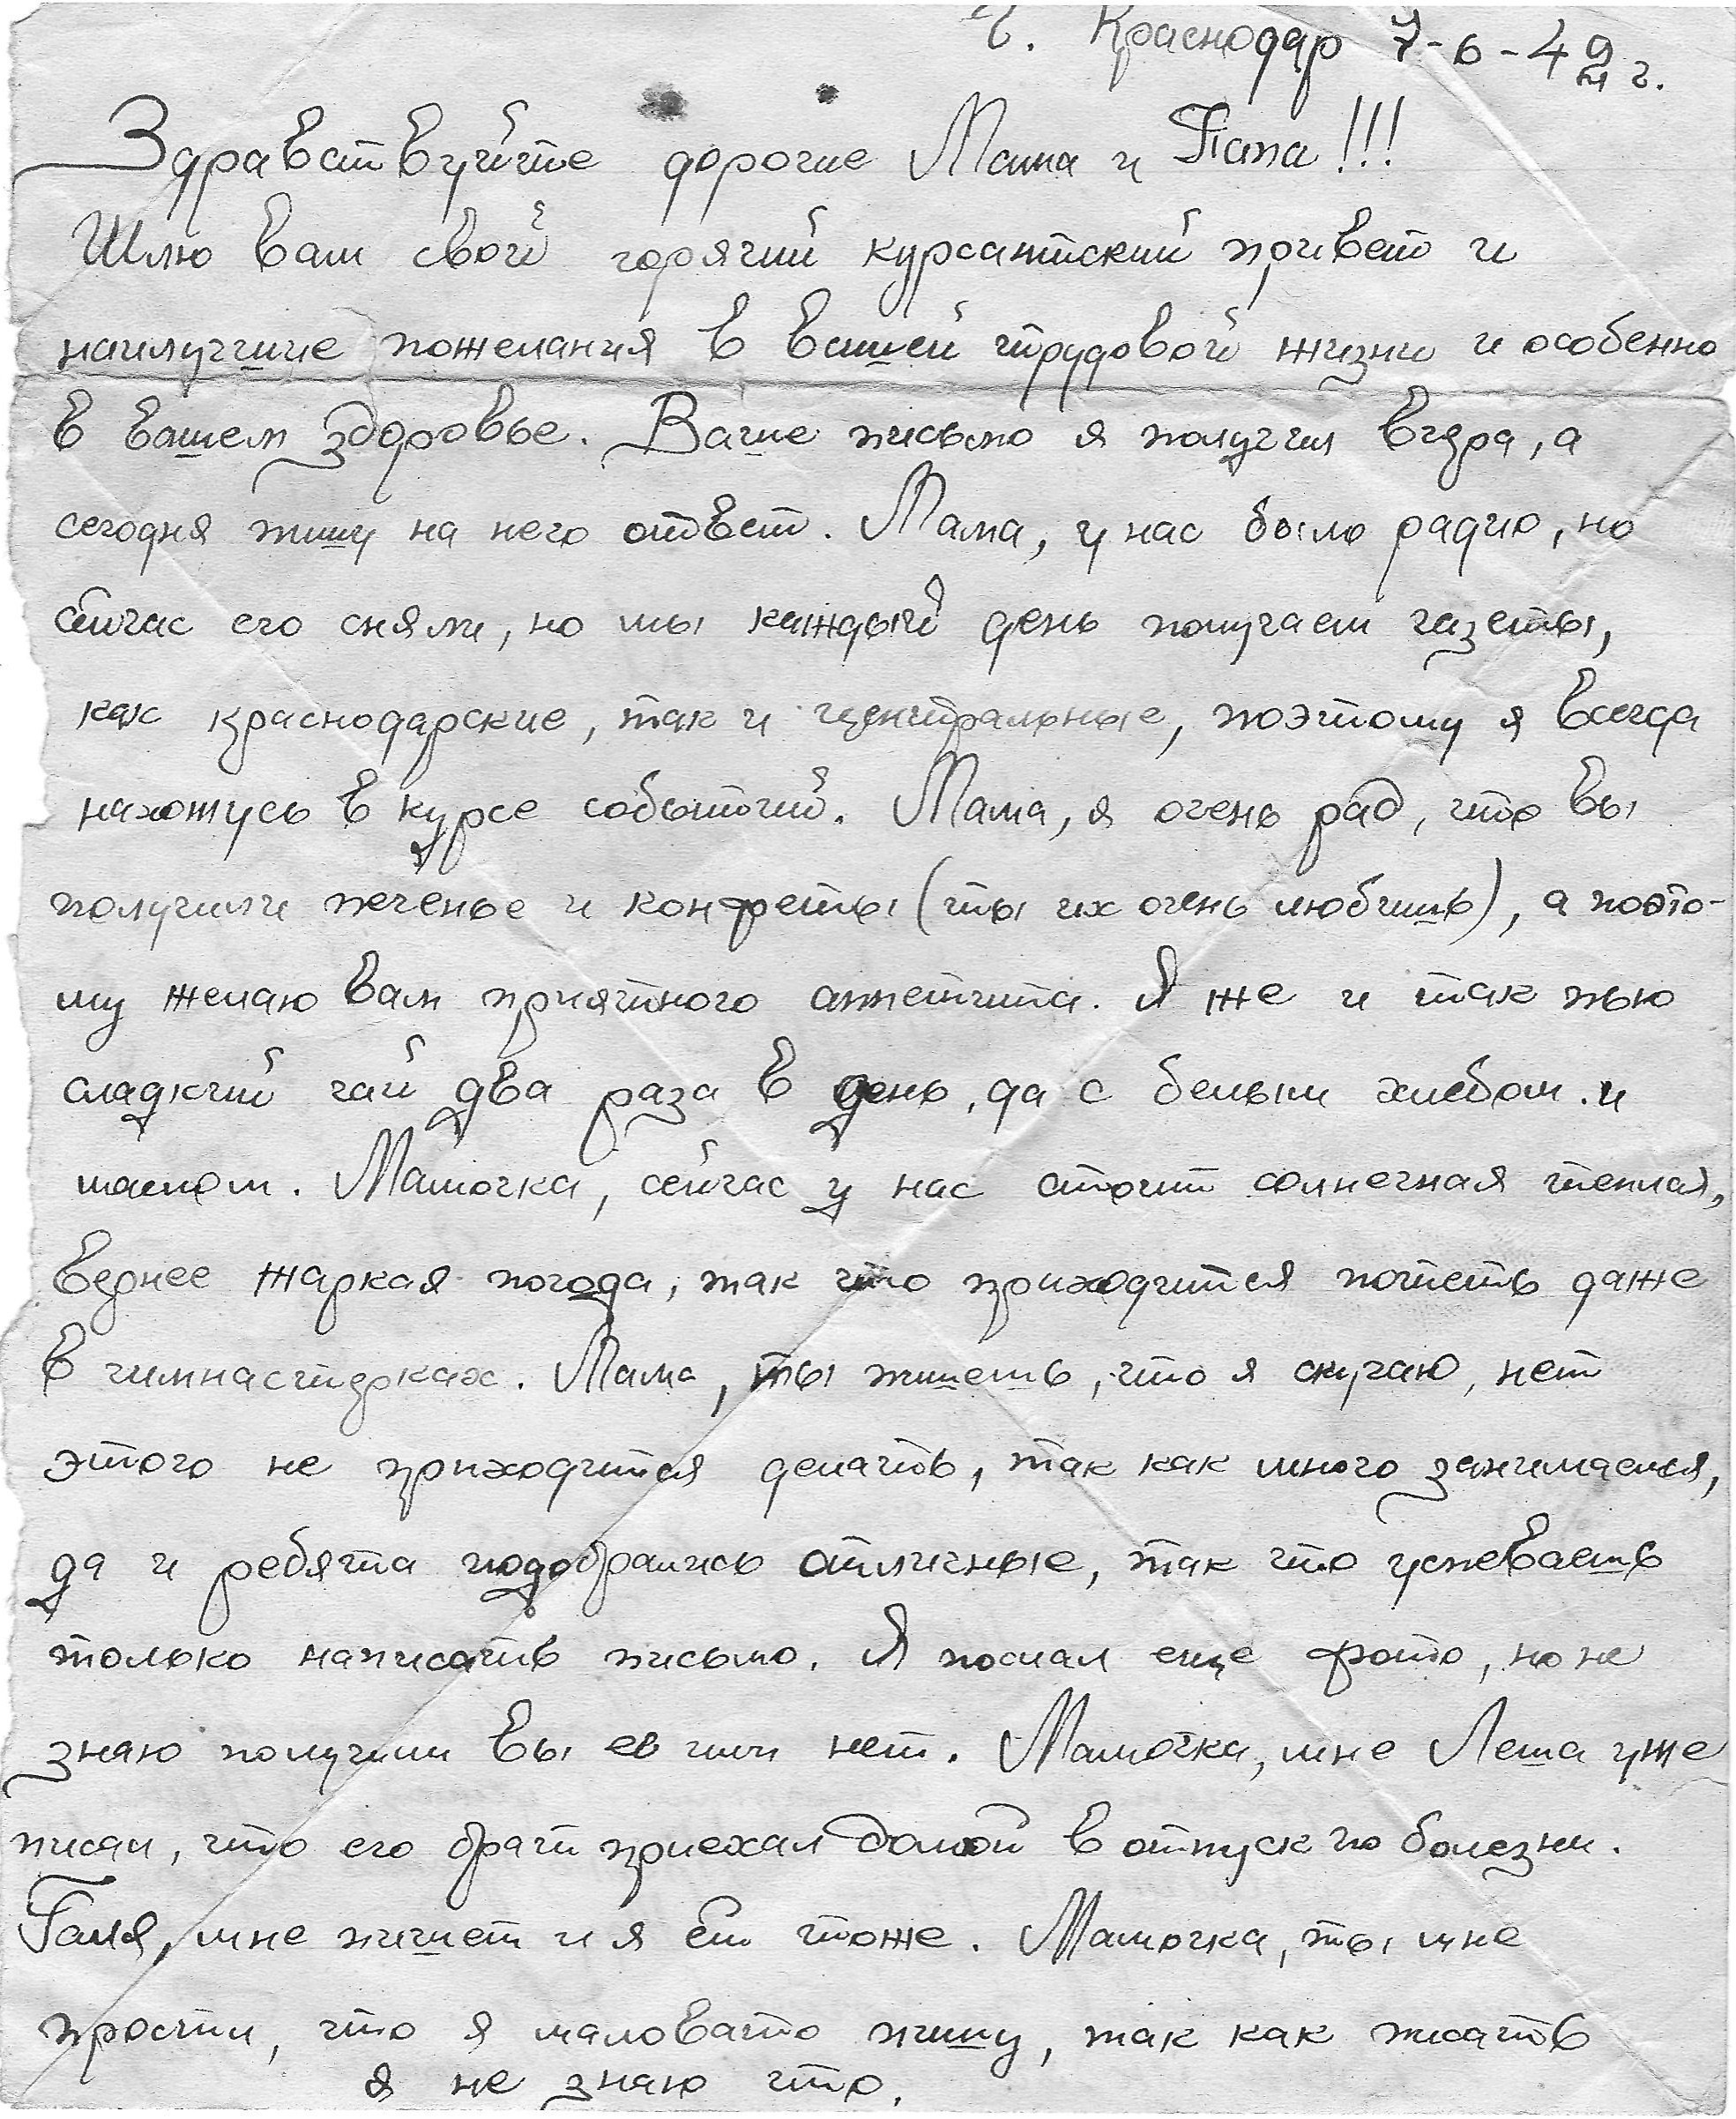 г. Краснодар 7-6-49 г.
Здравствуйте дорогие Мама и Папа!!!
Шлю вам свой горячий курсантский привет и
наилучшие пожелания в вашей трудовой жизни и особенно
в вашем здоровье. Ваше письмо я получил вчера, а
сегодня пишу на него ответ. Мама, у нас было радио, но
сейчас его сняли, но мы каждый день получаем газеты,
как краснодарские, так и центральные, поэтому я всегда
нахожусь в курсе событий. Мама, я очень рад, что вы
получили печенье и конфеты (ты их очень любишь), а поэто-
му желаю вам приятного аппетита. Я же и так пью
сладкий чай два раза в день, да с белым хлебом. и
маслом. Мамочка, сейчас у нас стоит солнечная теплая,
вернее жаркая погода, так что приходится потеть даже
в гимнастёрках. Мама, ты пишешь, что я скучаю, нет
этого не приходится делать, так как много занимаемся,
да и ребята подобрались отличные, так что успеваешь
только написать письмо. Я послал еще фото, но не
знаю получили вы ео или нет. Мамочка, мне Леша уже
писал, что его брат приехал домой в отпуск по болезни.
Галя, мне пишет и я ей тоже. Мамочка, ты мне
прости, что я маловато пишу, так как писать
я не знаю что.